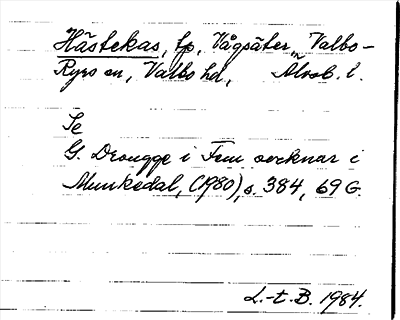 Hästekas, tp, Vågsäter, Valbo-
Ryrs sn, Valbo hd, Älvsb. l.
Se
G. Drougge i Fem socknar i
Munkedal, (1980), s. 384, 69 G.
L.-t. B. 1984.